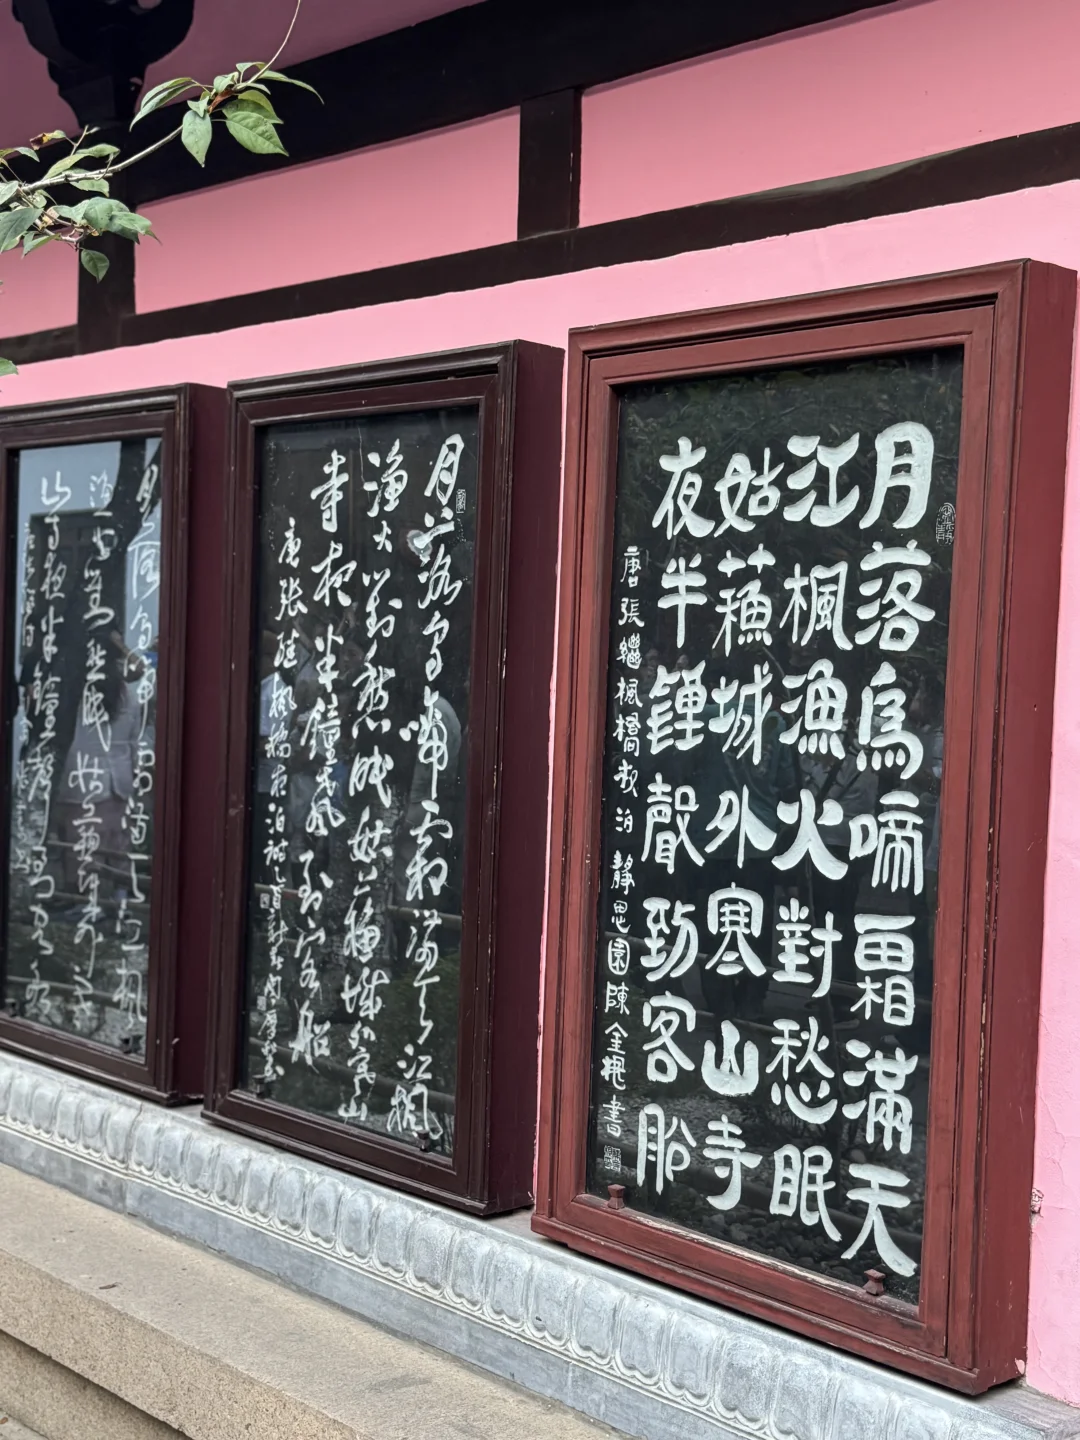 月落烏啼霜滿天
江楓漁火對愁眠
姑蘓城外寒山寺
夜半鍾聲到客船
唐張繼楓橋夜泊 靜思園陳金根書
月落烏啼霜滿天江楓
漁火對愁眠姑蘓城外寒山
寺夜半鐘聲到客船
唐張繼楓橋夜泊詩
月落烏啼霜滿天江楓
漁火對愁眠姑蘓城外寒
山寺夜半鐘聲到客船